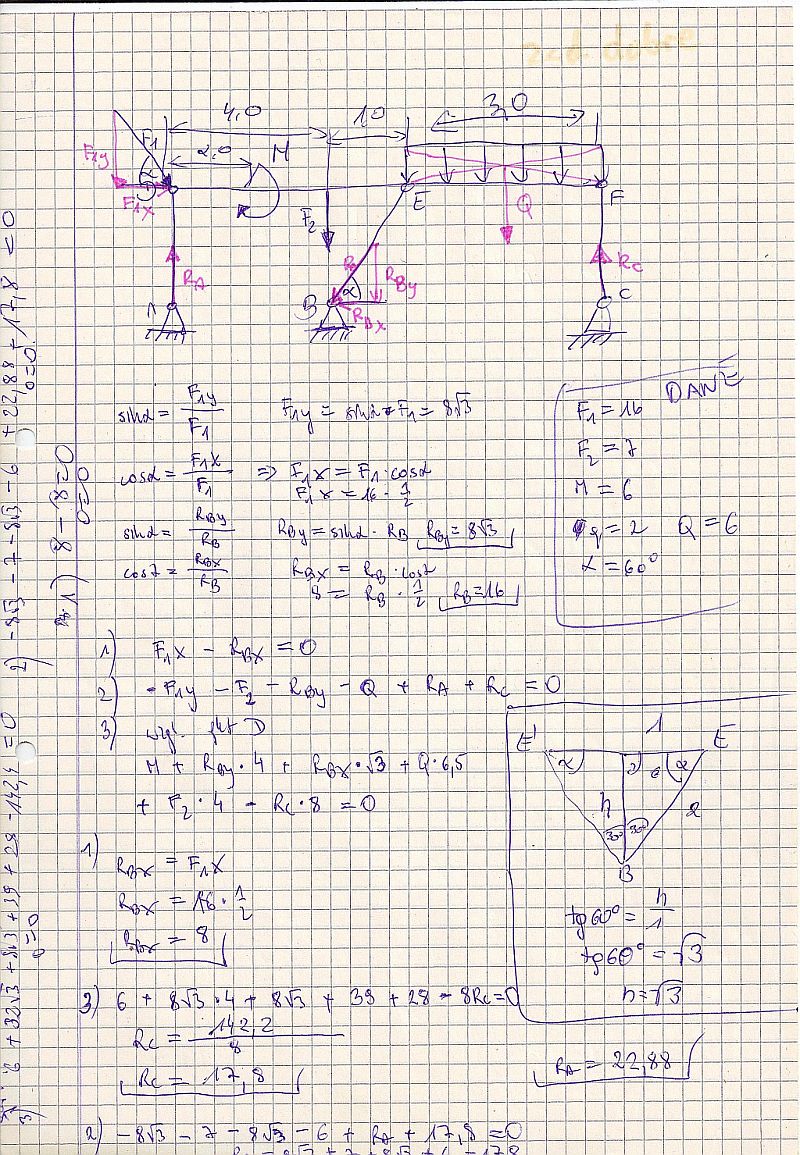 zad. dobre
4,0 1,0 3,0
2,0 M
F₁ α
F₁y
F₁x
F₂ E Q F
R_A R_B R_By R_C
A B α R_Bx C
sinα = F₁y / F₁ F₁y = sinα · F₁ = 8√3
cosα = F₁x / F₁ => F₁x = F₁ · cosα
F₁x = 16 · 1/2
sinα = R_By / R_B R_By = sinα · R_B R_By = 8√3
cosα = R_Bx / R_B R_Bx = R_B · cosα
8 = R_B · 1/2 R_B = 16
DANE
F₁ = 16
F₂ = 7
M = 6
q = 2 Q = 6
α = 60°
1) F₁x − R_Bx = 0
2) −F₁y − F₂ − R_By − Q + R_A + R_C = 0
3) wzgl. pkt D
M + R_By · 4 + R_Bx · √3 + Q · 6,5
+ F₂ · 4 − R_C · 8 = 0
1) R_Bx = F₁x
R_Bx = 16 · 1/2
R_Bx = 8
3) 6 + 8√3 · 4 + 8√3 + 39 + 28 − 8R_C = 0
R_C = 142,2 / 8
R_C = 17,8
E' 1 E
α α
h 2
30° 30°
B
tg60° = h / 1
tg60° = √3
h = √3
R_A = 22,88
2) −8√3 − 7 − 8√3 − 6 + R_A + 17,8 = 0
1) 8 − 8 = 0
0 = 0
2) −8√3 − 7 − 8√3 − 6 + 22,88 + 17,8 = 0
0 = 0
3) 6 + 32√3 + 8√3 + 39 + 28 − 142,4 = 0
0 = 0